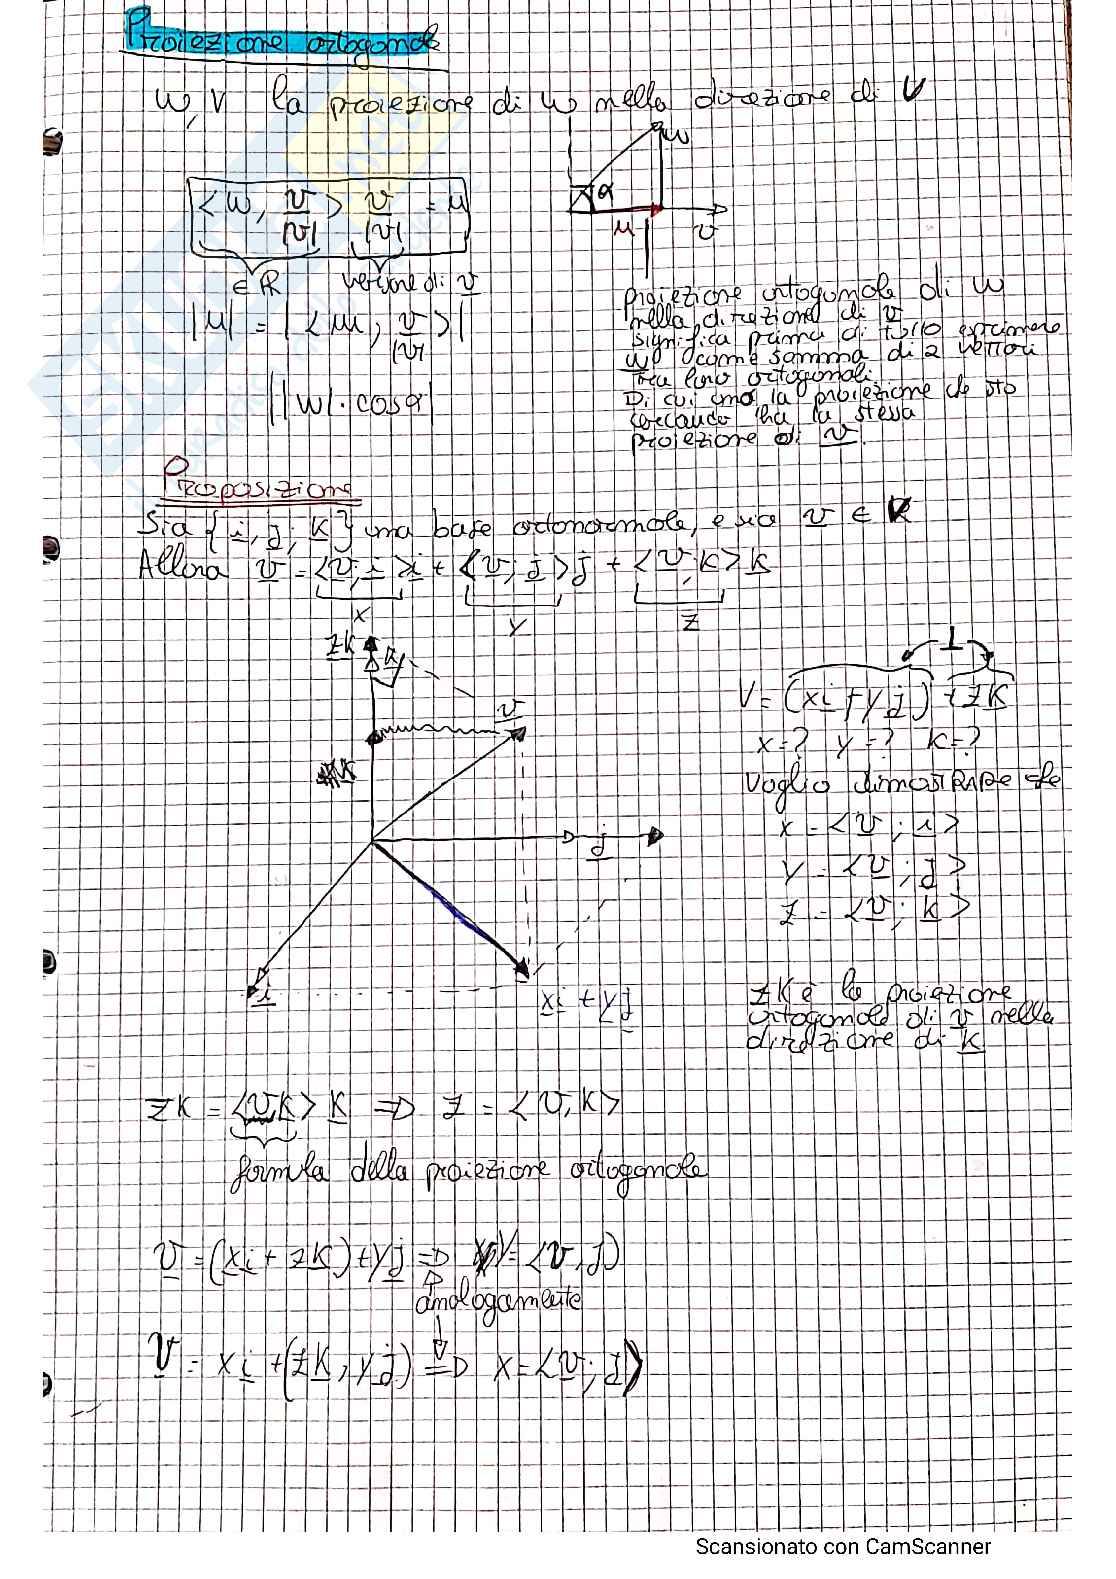 Proiezione ortogonale
w, v la proiezione di w nella direzione di v
w
α
< w, v/|v| > v/|v| = u
u v
∈ R versore di v
|u| = |< w, v/|v| >|
||w|·cosα|
proiezione ortogonale di w
nella direzione di v
significa prima di tutto esprimere
w come somma di 2 vettori
tra loro ortogonali.
Di cui una la proiezione che sto
cercando ha la stessa
proiezione di v.
Proposizione
Sia {i, j, k} una base ortonormale, e sia v ∈
Allora v = <v; i>i + <v; j>j + <v; k>k
x y z
zk
k
v
⊥
v = (xi + yj) + zk
x=? y=? k=?
voglio dimostrare che
x = <v; i>
y = <v; j>
z = <v; k>
j
i
xi + yj
zk è la proiezione
ortogonale di v nella
direzione di k
zk = <v,k> k ⇒ z = <v,k>
formula della proiezione ortogonale
v = (xi + zk) + yj ⇒ y = <v, j>
analogamente
v = xi + (zk, yj) ⇒ x = <v; j>
Scansionato con CamScanner